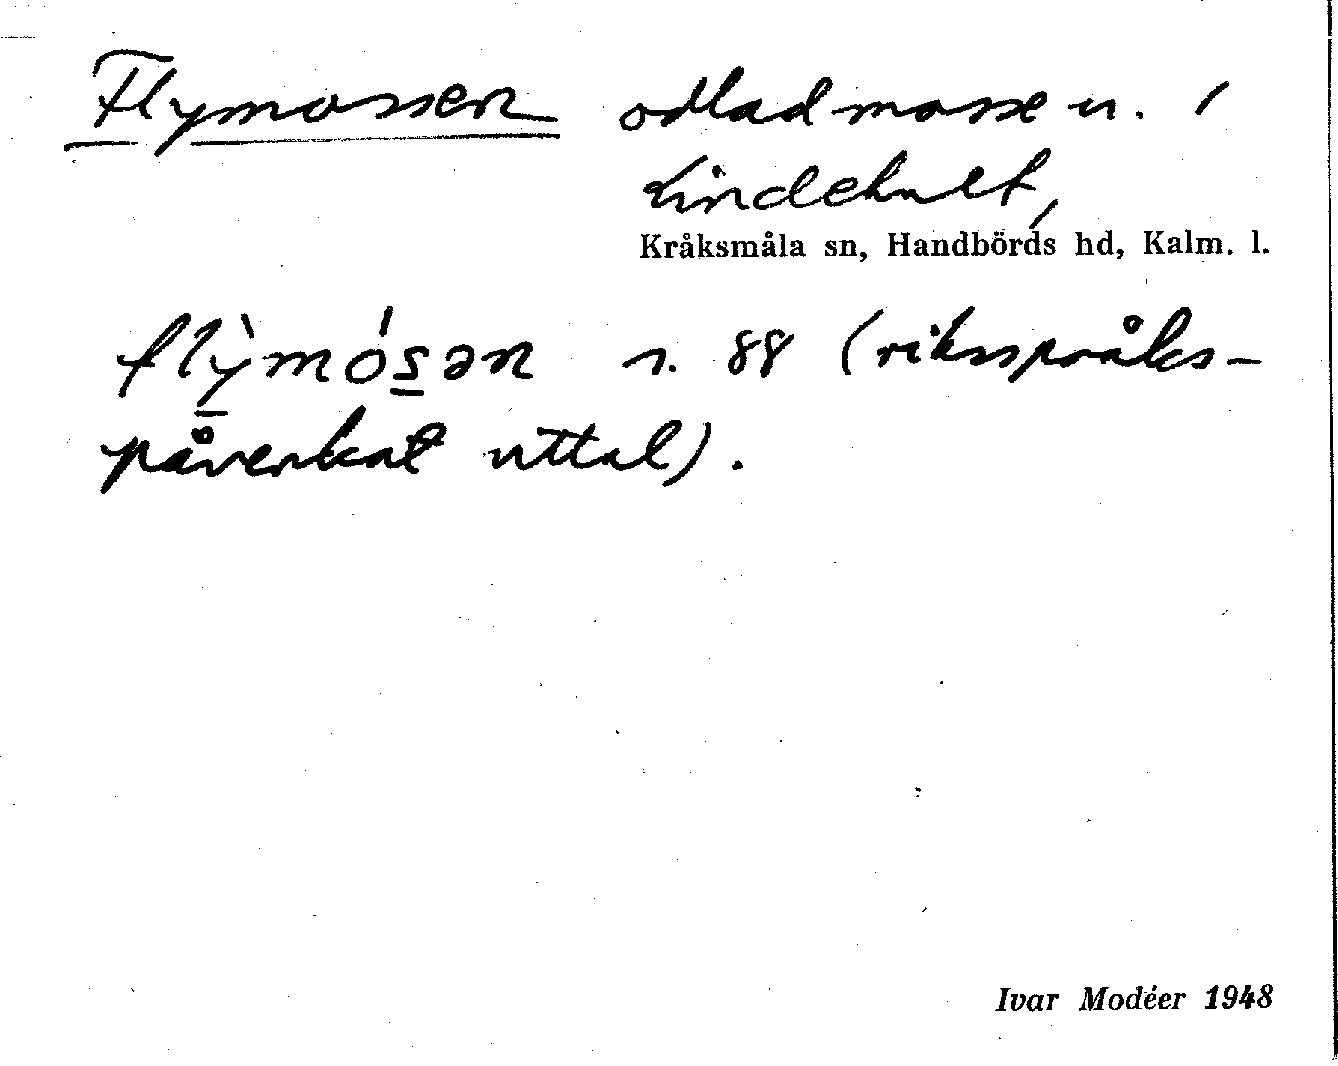 Flymossen odlad mosse n. /
Lindehult,
Kråksmåla sn, Handbörds hd, Kalm. l.
flỳmósən s. 88 (riksspråks-
påverkat uttal).
Ivar Modéer 1948